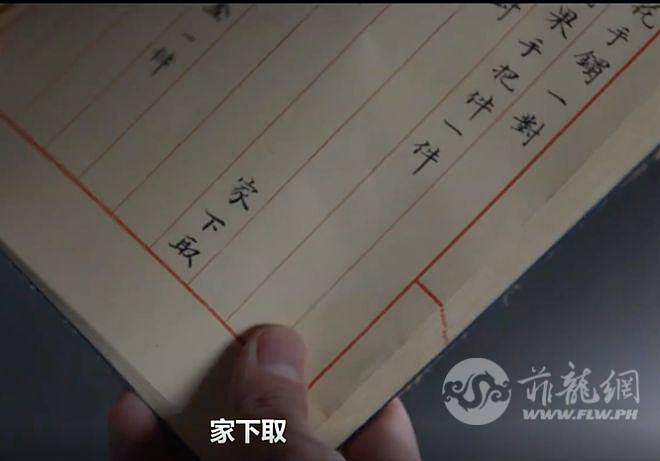 花手鐲一對
果手把件一件
對
家下取
一件
家下取
菲龍網
WWW.FLW.PH